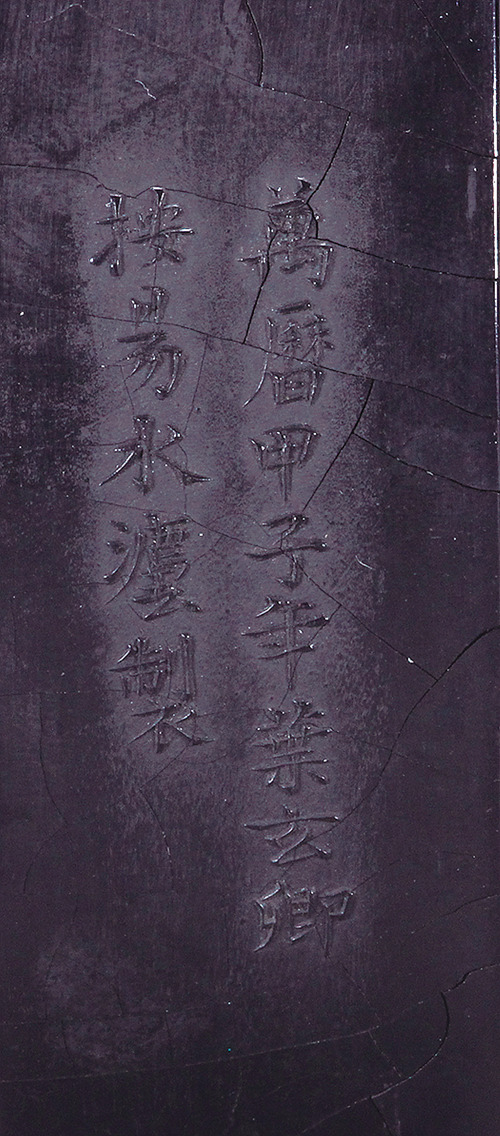 萬曆甲子年葉玄卿
按易水灋製